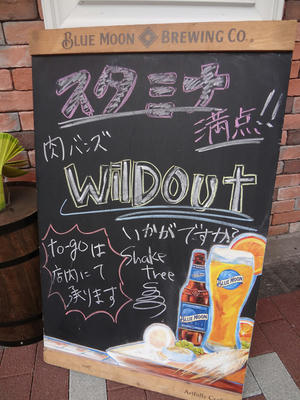 BLUE MOON BREWING CO.
スタミナ
満点!!
肉バンズ
WiLDOut
いかがですか?
to-goは
店内にて
承ります
Shake
tree
BLUE MOON
BLUE MOON